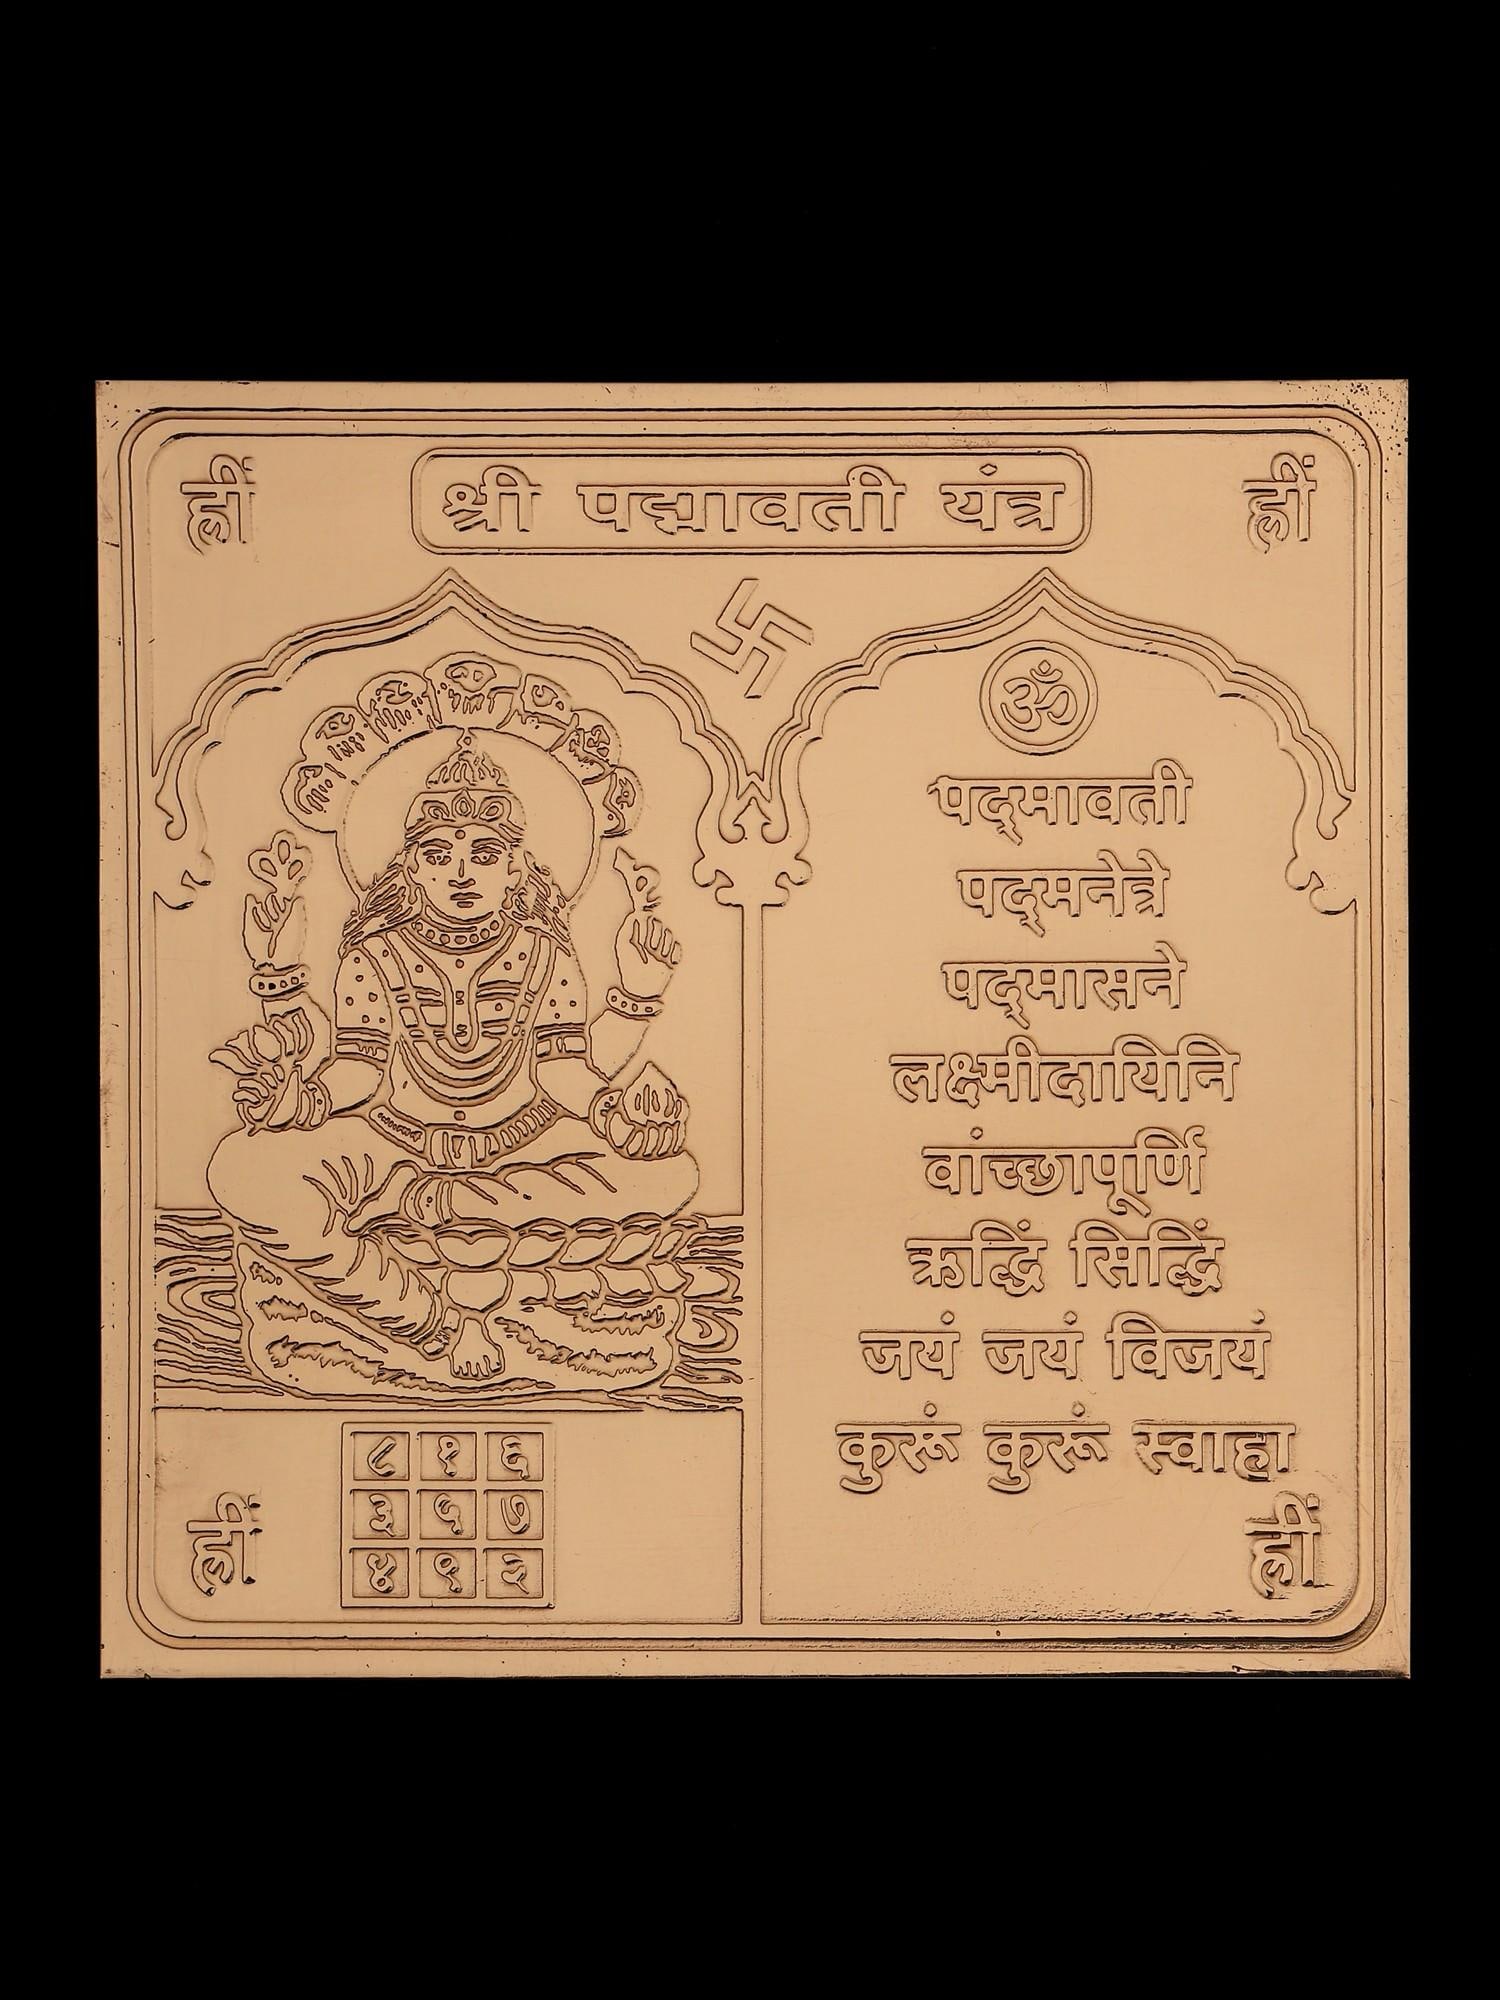 ह्रीं श्री पद्मावती यंत्र ह्रीं
ॐ
पद्‌मावती
पद्‌मनेत्रे
पद्‌मासने
लक्ष्मीदायिनि
वांच्छापूर्णि
ऋद्धिं सिद्धिं
जयं जयं विजयं
कुरूं कुरूं स्वाहा
८ १ ६
३ ५ ७
४ ९ २
ह्रीं ह्रीं